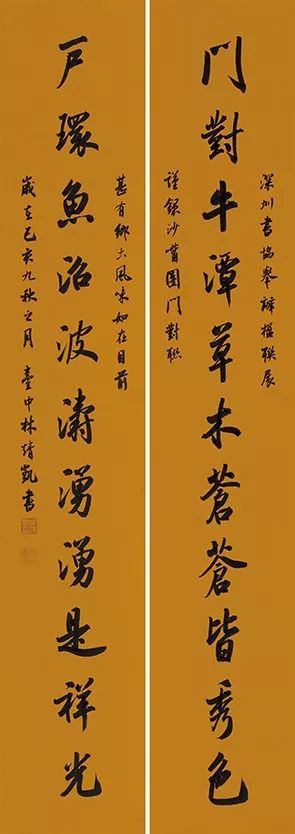 深圳書協舉辦楹聯展
門對牛潭草木蒼蒼皆秀色
謹錄沙嘴圍門對聯
甚有鄉土風味如在目前
戶環魚沼波濤湧湧是祥光
歲在己亥九秋之月 臺中林凱書